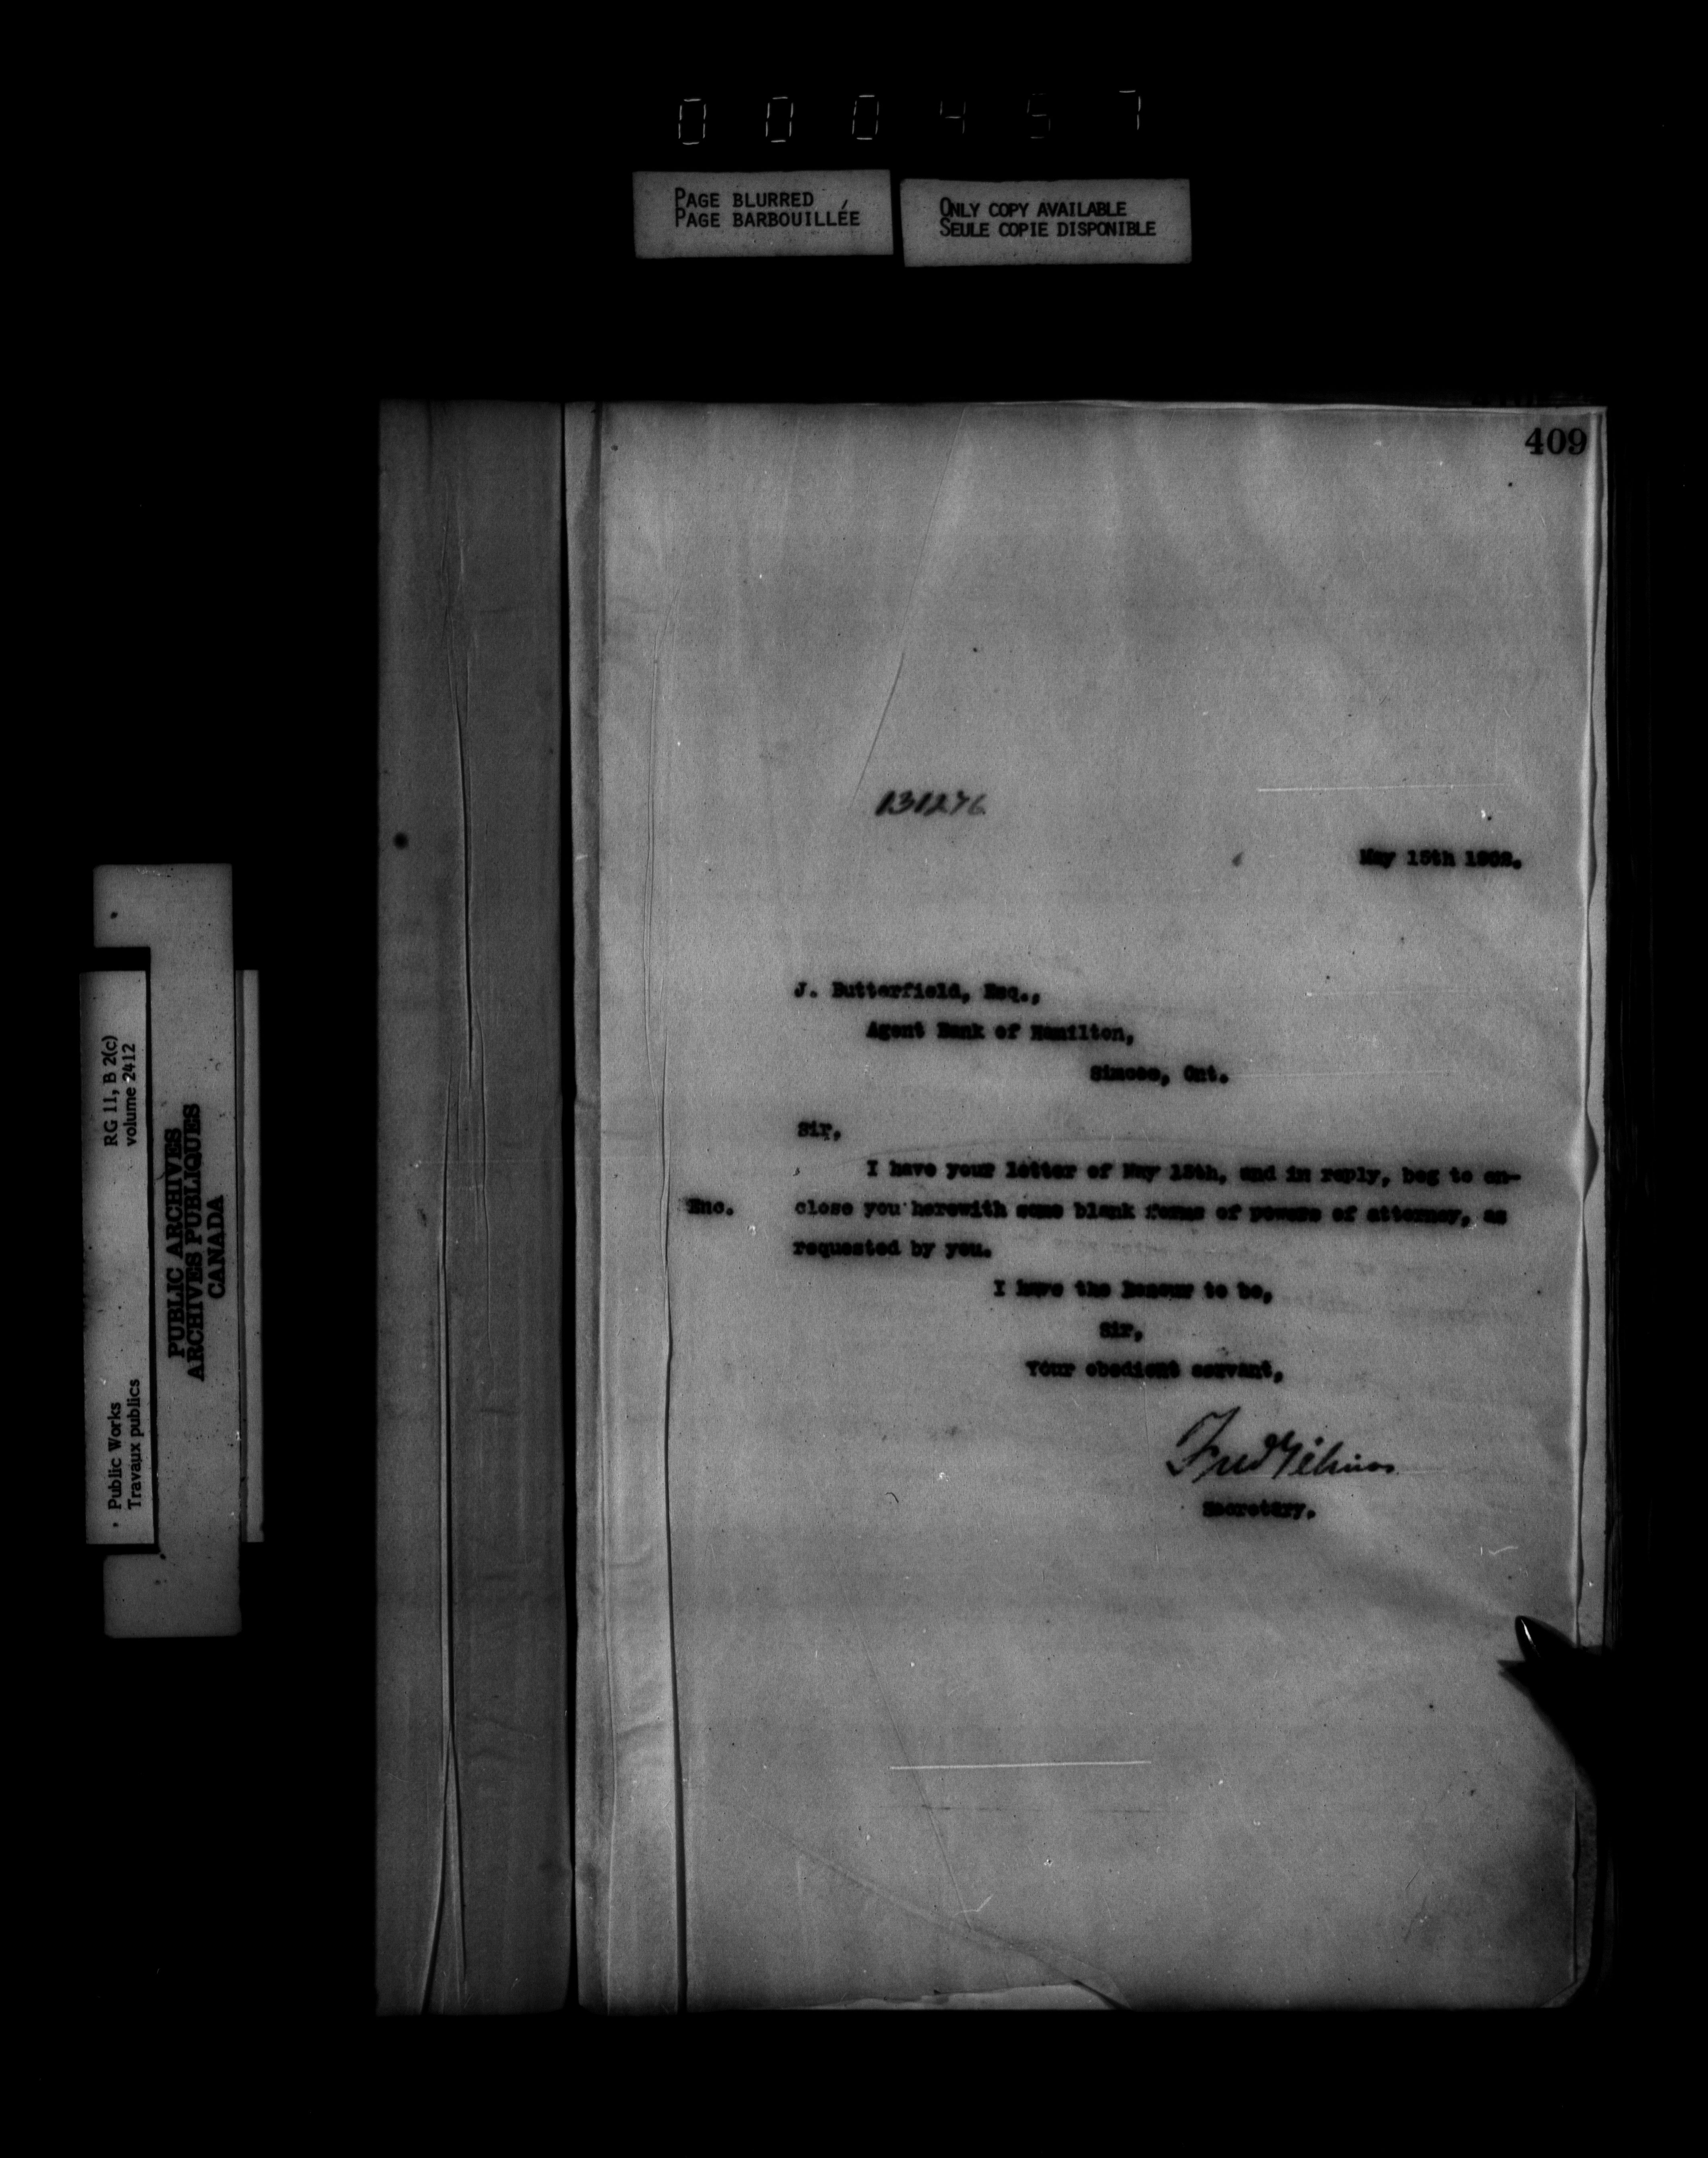 000457
PAGE BLURRED
PAGE BARBOUILLÉE
ONLY COPY AVAILABLE
SEULE COPIE DISPONIBLE
409
131276
May 15th 1902.
J. Butterfield, Esq.,
Agent Bank of Hamilton,
Simcoe, Ont.
Sir,
I have your letter of May 13th, and in reply, beg to en-
Enc. close you herewith some blank forms of powers of attorney, as
requested by you.
I have the honour to be,
Sir,
Your obedient servant,
Fred Gélinas
Secretary.
RG 11, B 2(c)
volume 2412
Public Works
Travaux publics
PUBLIC ARCHIVES
ARCHIVES PUBLIQUES
CANADA